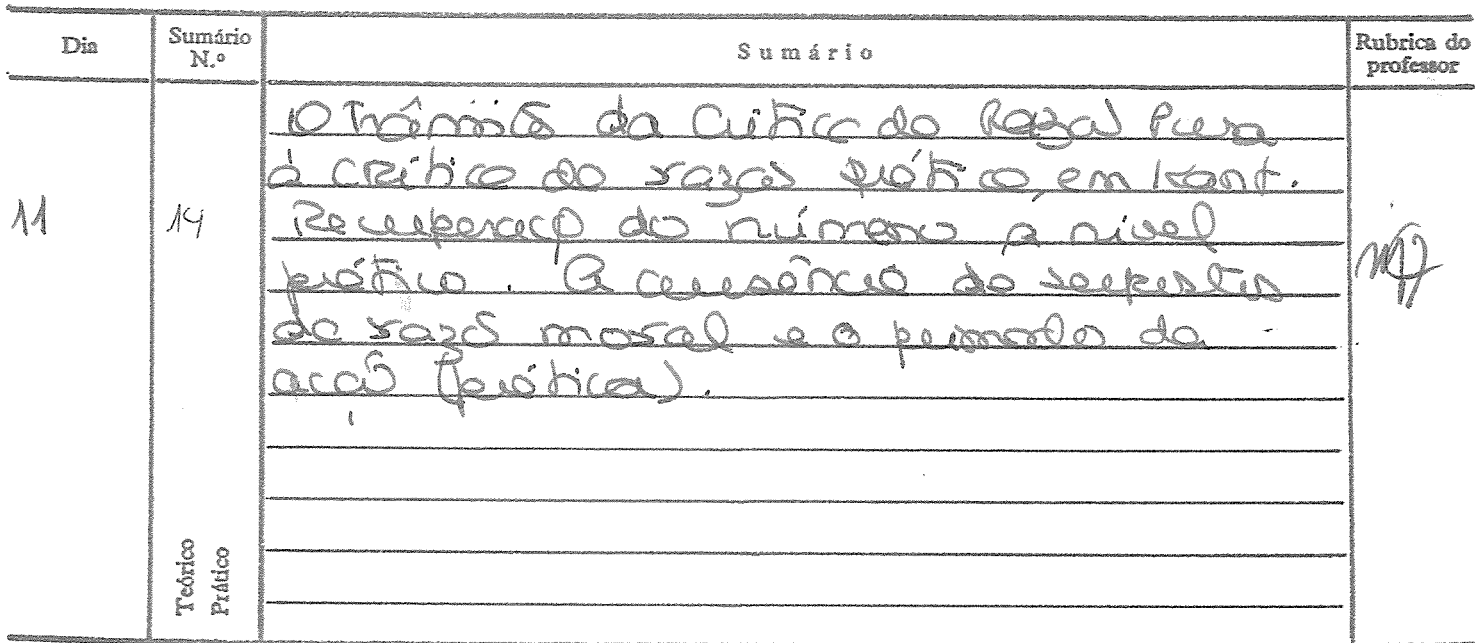 Dia
Sumário N.º
Sumário
Rubrica do professor
O Trâmite da Crítica da Razão Pura
à crítica da razão prática, em Kant.
11
14
Recuperaçõ do númeno a nível
prático. A do
da razão moral e o primado da
acção (prática).
Teórico
Prático